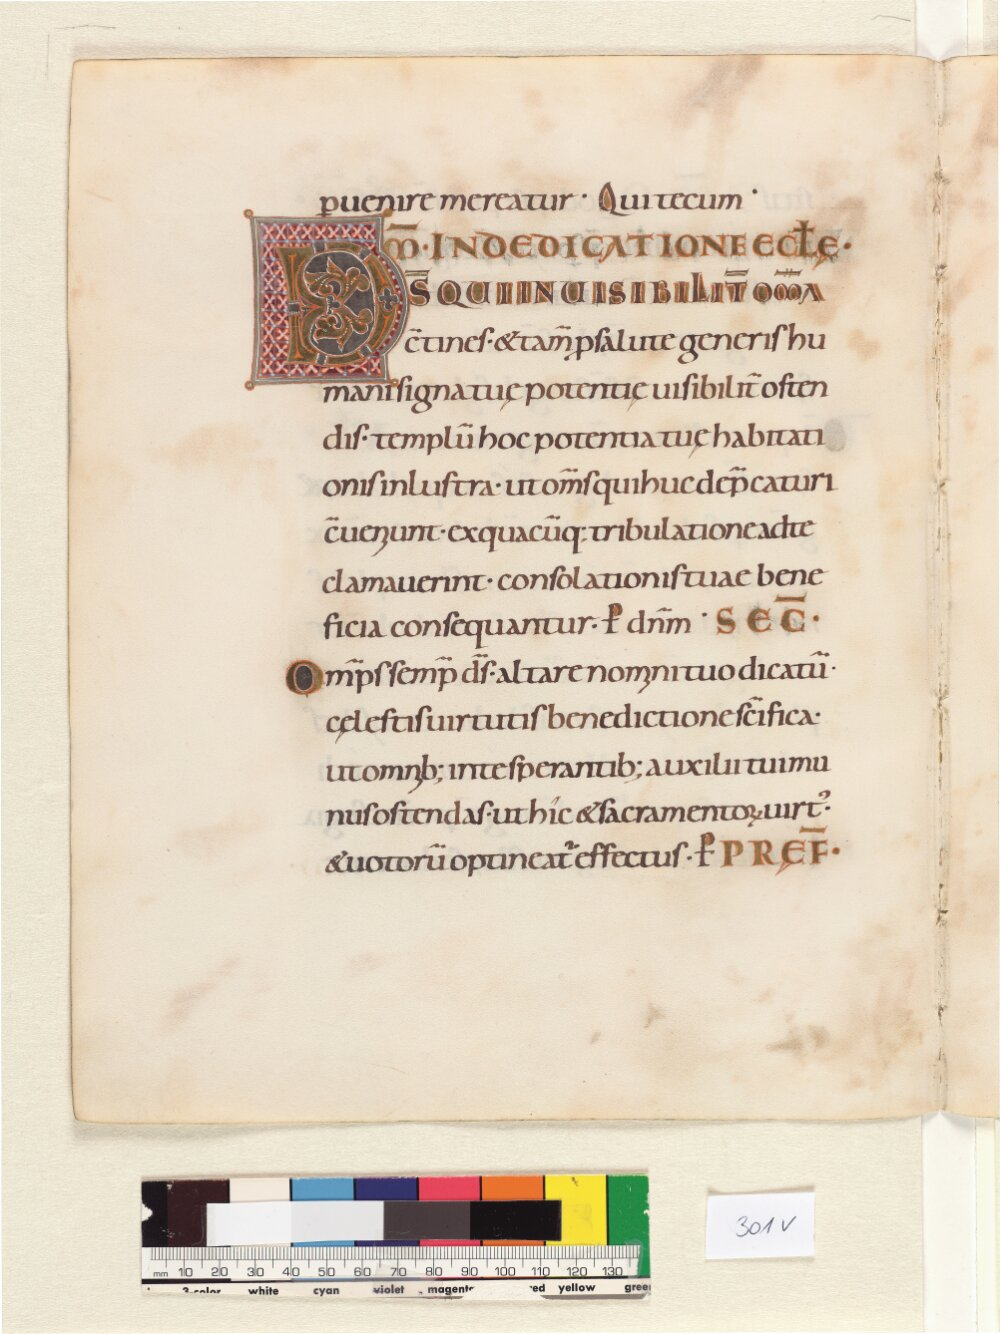 puenire mereatur · Qui tecum ·
M̅ · IN DEDICATIONE ECCƚE̜ ·
D S̅ QUI INUISIBILIT̅ OM̅A
c̅tines · & tam̅ p salute generis hu
mani signa tuę potentię uisibilit̅ osten
dis · templu̅ hoc potentia tuę habitati
onis inlustra · ut om̅s qui huc dep̅caturi
c̅uenunt · ex quacu̅q: tribulatione ad te
clamauerint · consolationis tuae bene
ficia consequantur · P dn̅m · SEC̅ ·
Om̅ps semp̅ d̅s · altare nomini tuo dicatu̅ ·
cęlestis uirtutis benedictione sc̅ifica ·
ut omnib; in te sperantib; auxilii tui mu
nus ostendas · ut hic & sacramentoꝝ uirt᾽ ·
& uotoru̅ optineat᾽ effectus · P PREF̅ ·
301 v
mm 10 20 30 40 50 60 70 80 90 100 110 120 130
3-color white cyan violet magenta red yellow green